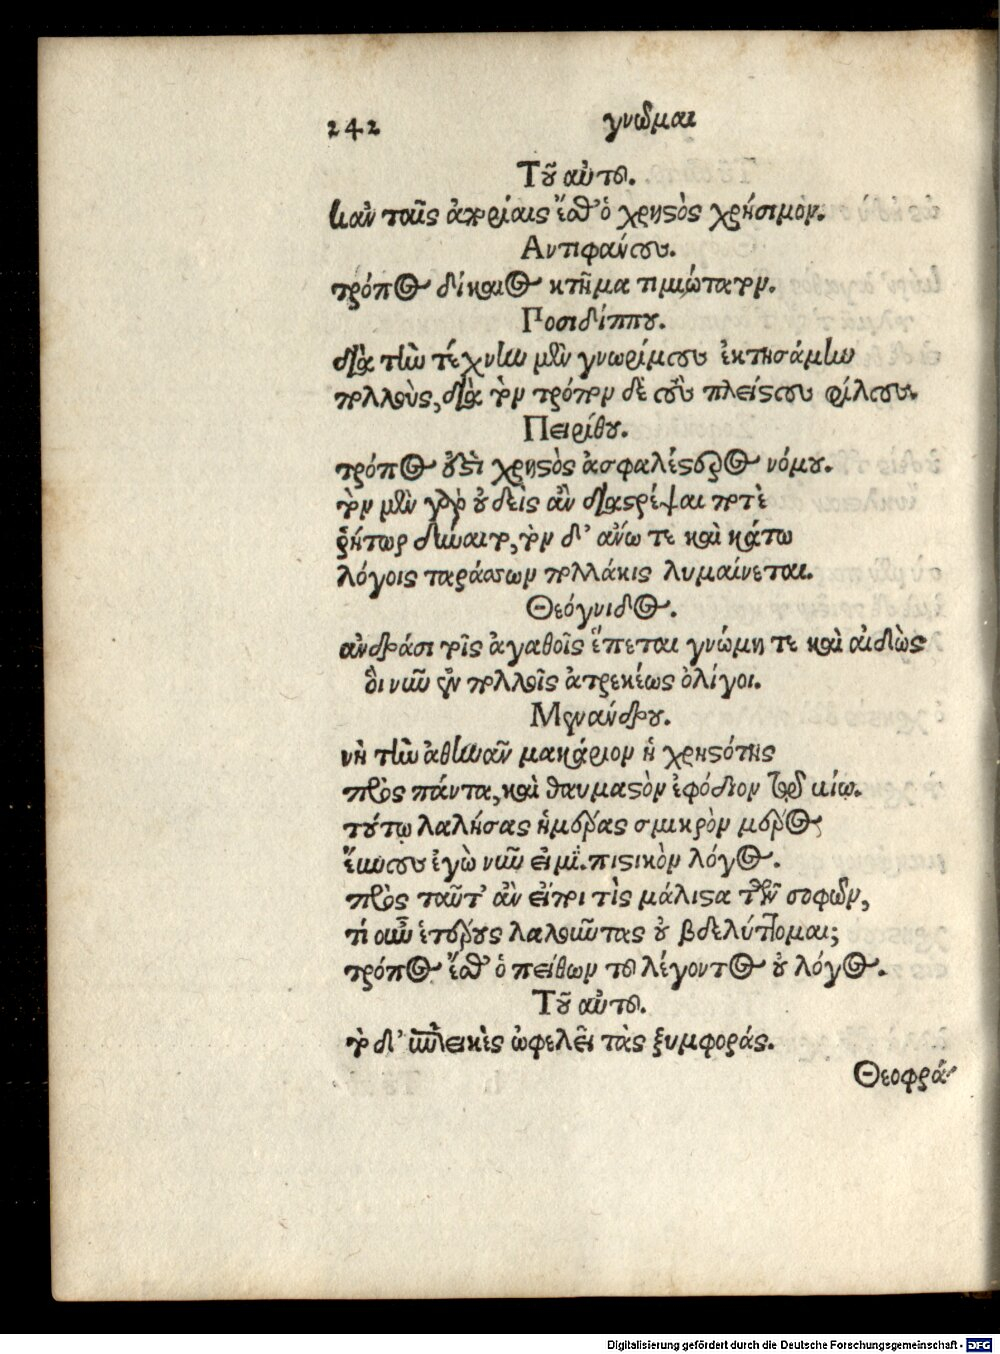 242 γνῶμαι
Τοῦ αὐτοῦ.
κἀν ταῖς ἀγρίαις ἔσθ' ὁ χρηστὸς χρήσιμον.
Αντιφάνους.
τρόπος δίκαιος κτῆμα τιμιώτατον.
Ποσιδίππου.
διὰ τὴν τέχνην μὲν γνωρίμους ἐκτησάμην
πολλοὺς, διὰ τὸν τρόπον δὲ τοὺς πλείστους φίλους.
Πειρίθου.
τρόπος ἐστὶ χρηστὸς ἀσφαλέστερος νόμου.
τὸν μὲν γὰρ οὐδεὶς ἂν διαστρέψαι ποτὲ
ῥήτωρ δύναιτο, τὸν δ' ἄνω τε καὶ κάτω
λόγοις ταράσσων πολλάκις λυμαίνεται.
Θεόγνιδος.
ἀνδράσι τοῖς ἀγαθοῖς ἕπεται γνώμη τε καὶ αἰδὼς
οἳ νῦν ἐν πολλοῖς ἀτρεκέως ὀλίγοι.
Μενάνδρου.
νὴ τὴν ἀθηνᾶν μακάριον ἡ χρηστότης
πρὸς πάντα, καὶ θαυμαστὸν ἐφόδιον βίῳ.
τούτῳ λαλήσας ἡμέρας σμικρὸν μέρος
εὔνους ἐγὼ νῦν εἰμί. πιστικὸν λόγος.
πρὸς ταῦτ' ἂν εἴποι τὶς μάλιστα τῶν σοφῶν,
τί οὖν ἑτέρους λαλοῦντας οὐ βδελύττομαι;
τρόπος ἔσθ' ὁ πείθων τοῦ λέγοντος οὐ λόγος.
Τοῦ αὐτοῦ.
τὸ δ' ἐπιεικὲς ὠφελεῖ τὰς ξυμφοράς.
Θεοφρά
Digitalisierung gefördert durch die Deutsche Forschungsgemeinschaft - DFG